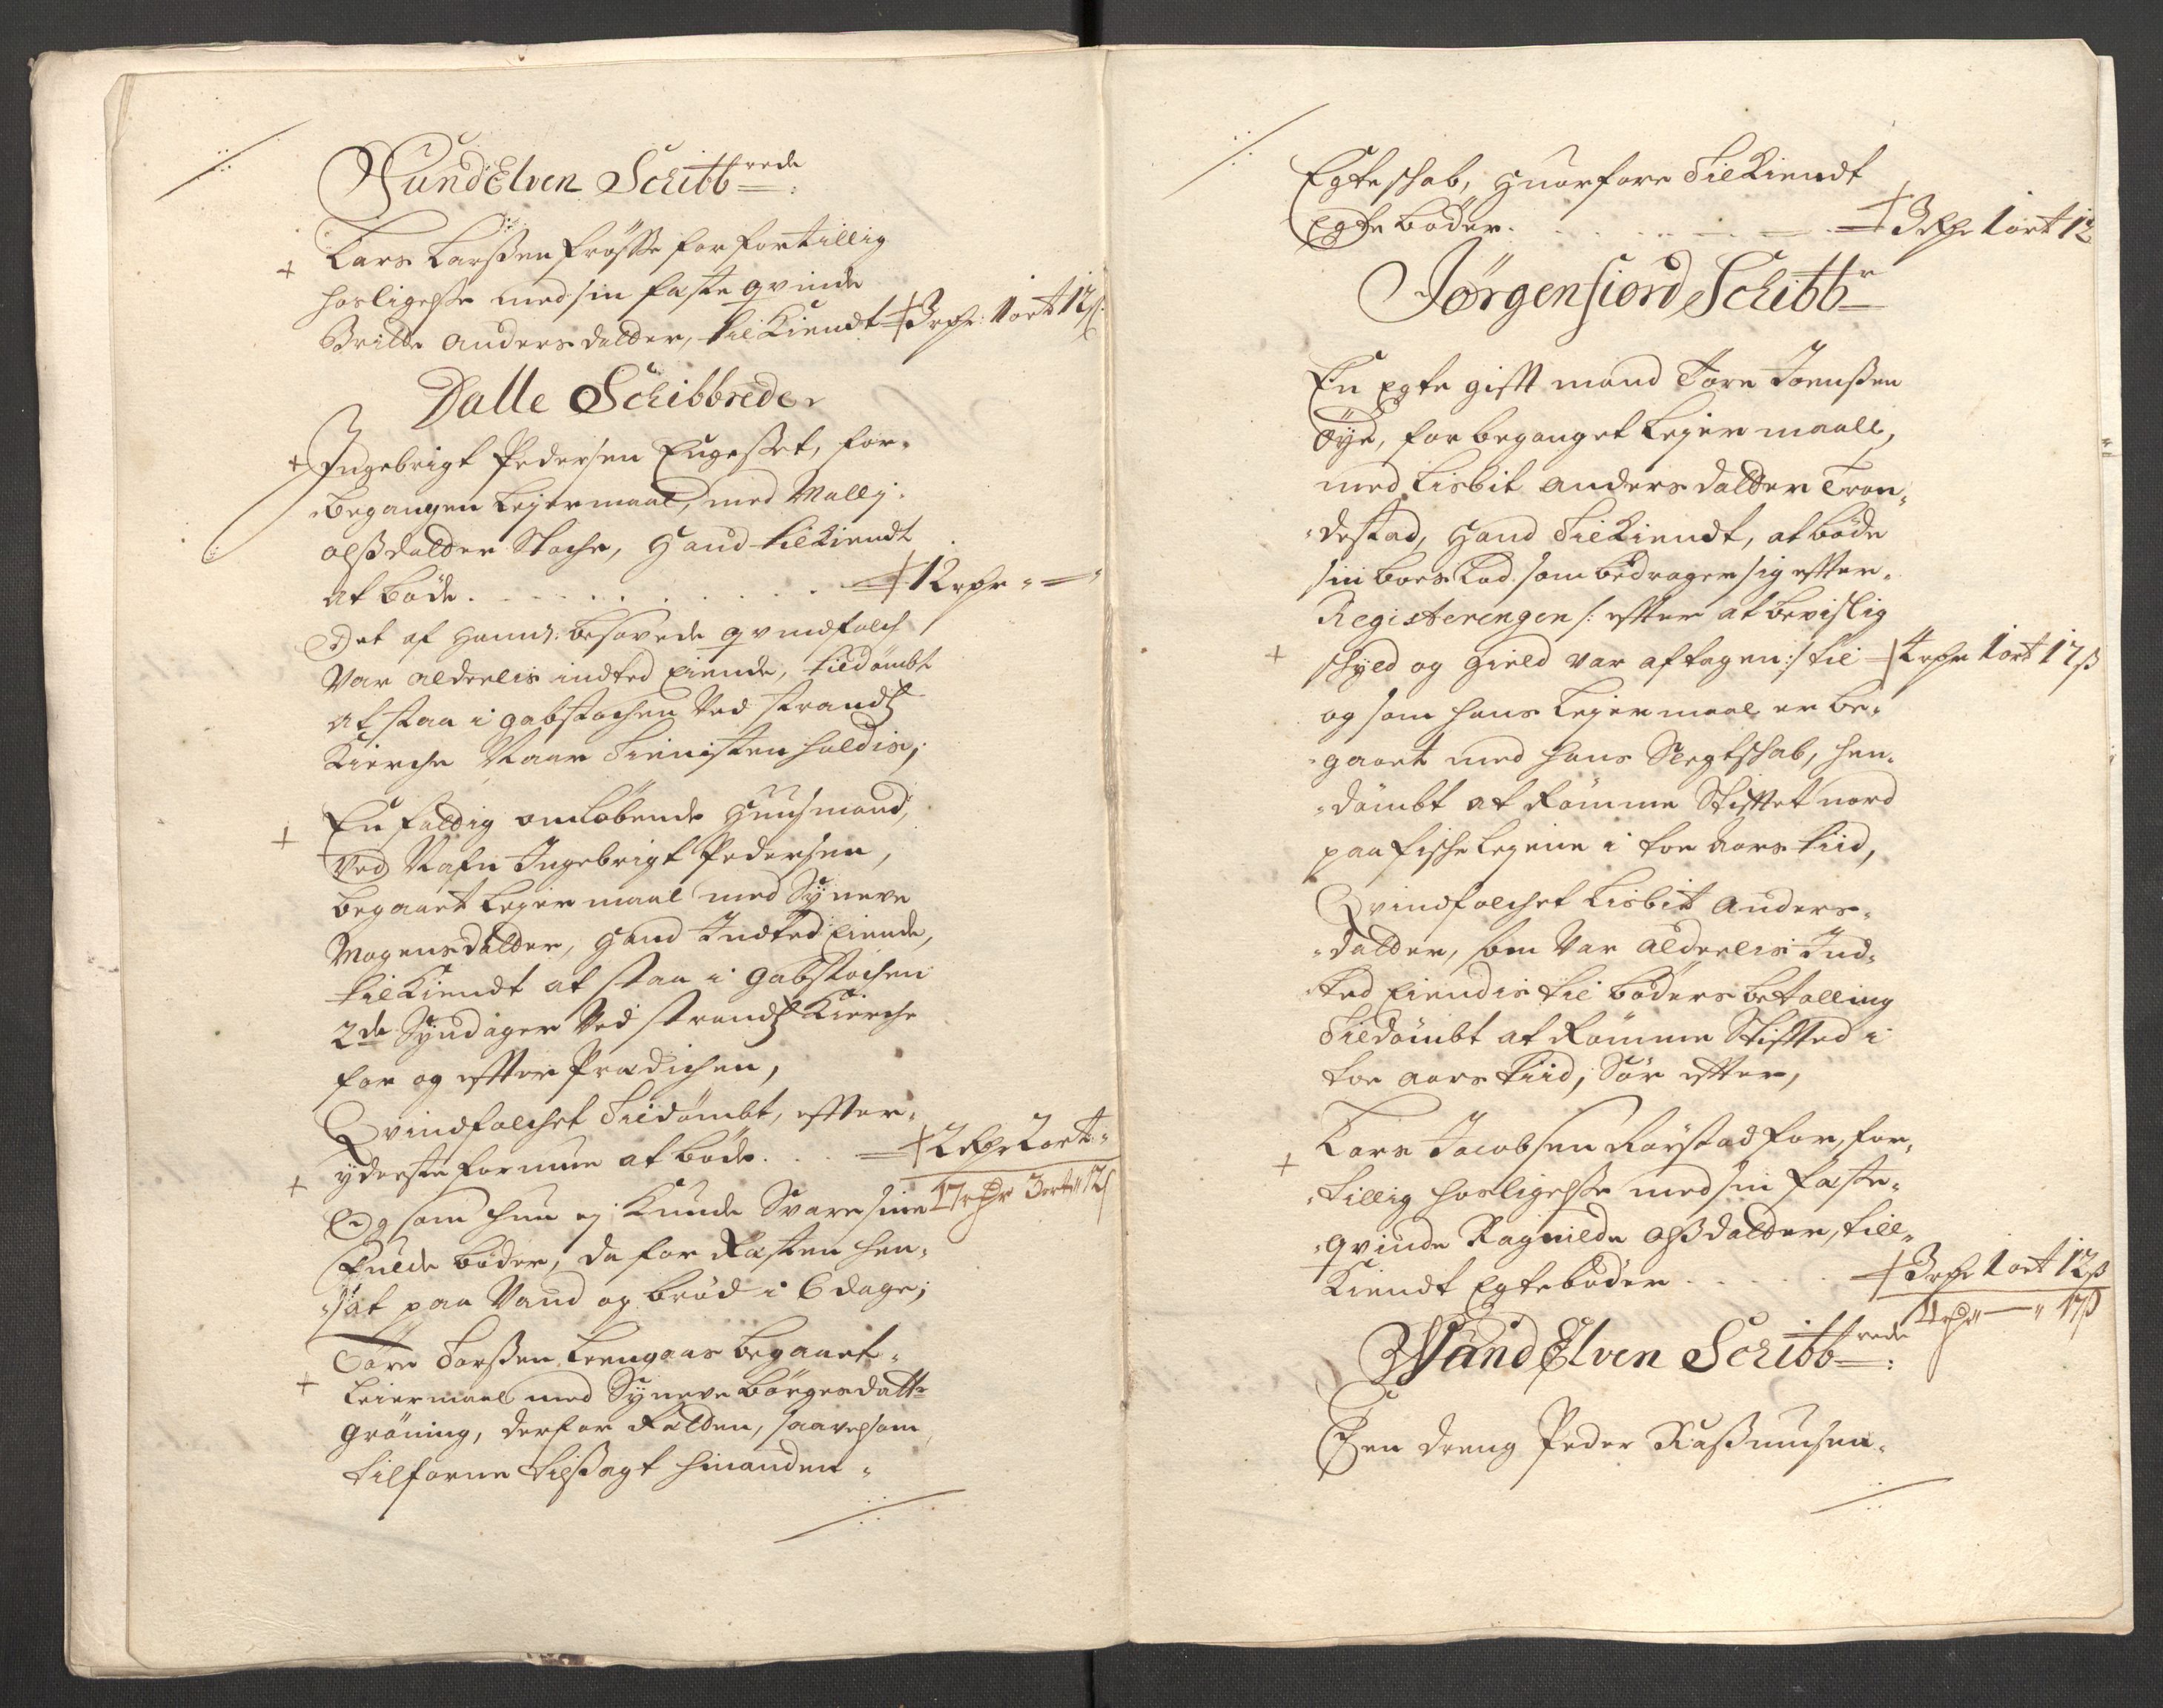 WandElven Schibb<sup>rede</sup>:
Lars Larßen Frøsse for fortillig
hosligelse med sin feste qvinde
Brilde Andersdatter, tilkiendt 3 rdr: 1 ort 12 s:
Dalle Schibbrede
Ingebrigt Pedersen Engeset, for-
begangen Leyermaal, med Mally
olsdatter Stoche, hand tilkiendt
at böde. . . . 12 rdr
Det af hannem besovede qvindfolch
Var alderlis indted Eiende, tildømbt
at staa i gabstochen Ved strands
Kierche Naar Tienisten holdis;
En faldig omløbende huusmand,
Ved Nafn Ingebrigt Pedersen,
begaaet Leyermaal med Synneve
Mogensdatter, hand Indted Eiende,
tilkiendt at staa i gabstochen
2de Syndager Ved strands Kierche
for og efter Prædichen,
Qvindfolchet Tildømbt, efter
yderste formue at böde. . . 2 rdr 2 ort
17 rdr 3 ort 12 s
Og som hun ej kunde Svare sine
fulde böder, da for Resten hen-
sat paa Vand og brød i 6 dage;
Tørre Larßen Lrengaas begaaet
Leiermaal med Synneve Børgesdatt<sup>r</sup>
Grøning, derfor Falden, saavelsom
tilforne tilsagt hinanden
Egteschab, huorfore Tilkiendt
Egte böder. . . . 3 rdr 1 ort 12
Jørgenfiord Schibb<sup>r</sup>
En Egte gifft mand Tore Joenßen
Öye, for beganget Leyermaall,
med Lisbit Andersdatter Tron-
destad, hand Tilkiendt, at böde
sin boes Lod som bedrager sig efter
Registeringen /: efter at bevislig
schyld og gield var aftagen :/ til 4 rdr 1 ort 17 s
og som hans Leyermaal er be-
gaaet med hans Slegtschab, hen-
dømbt at Rømme Stifftet nord
paa fische Leyene i toe aars tiid,
Qvindfolchet Lisbit Anders-
datter, som Var alderlis Ind-
ted Eiendis til böders betalling
Tildømbt at Rømme Stiffted i
toe aars tiid, Sør efter,
Lars Jacobsen Rørstad for, for-
tillig hosligelse med sin feste-
qvinde Ragnilde olsdatter, till-
kiendt Egteböder . . . 3 rdr 1 ort 12 s
WandElven Schibb<sup>rede</sup>:
Een dreng Peder Raßmusen